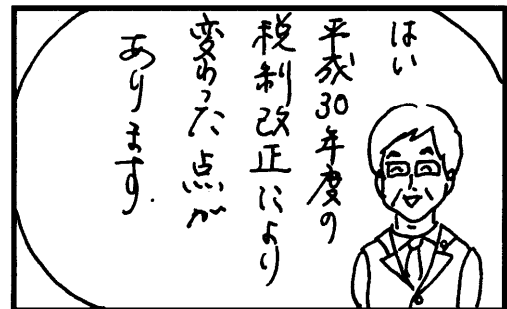 はい
平成30年度の
税制改正により
変わった点が
あります.